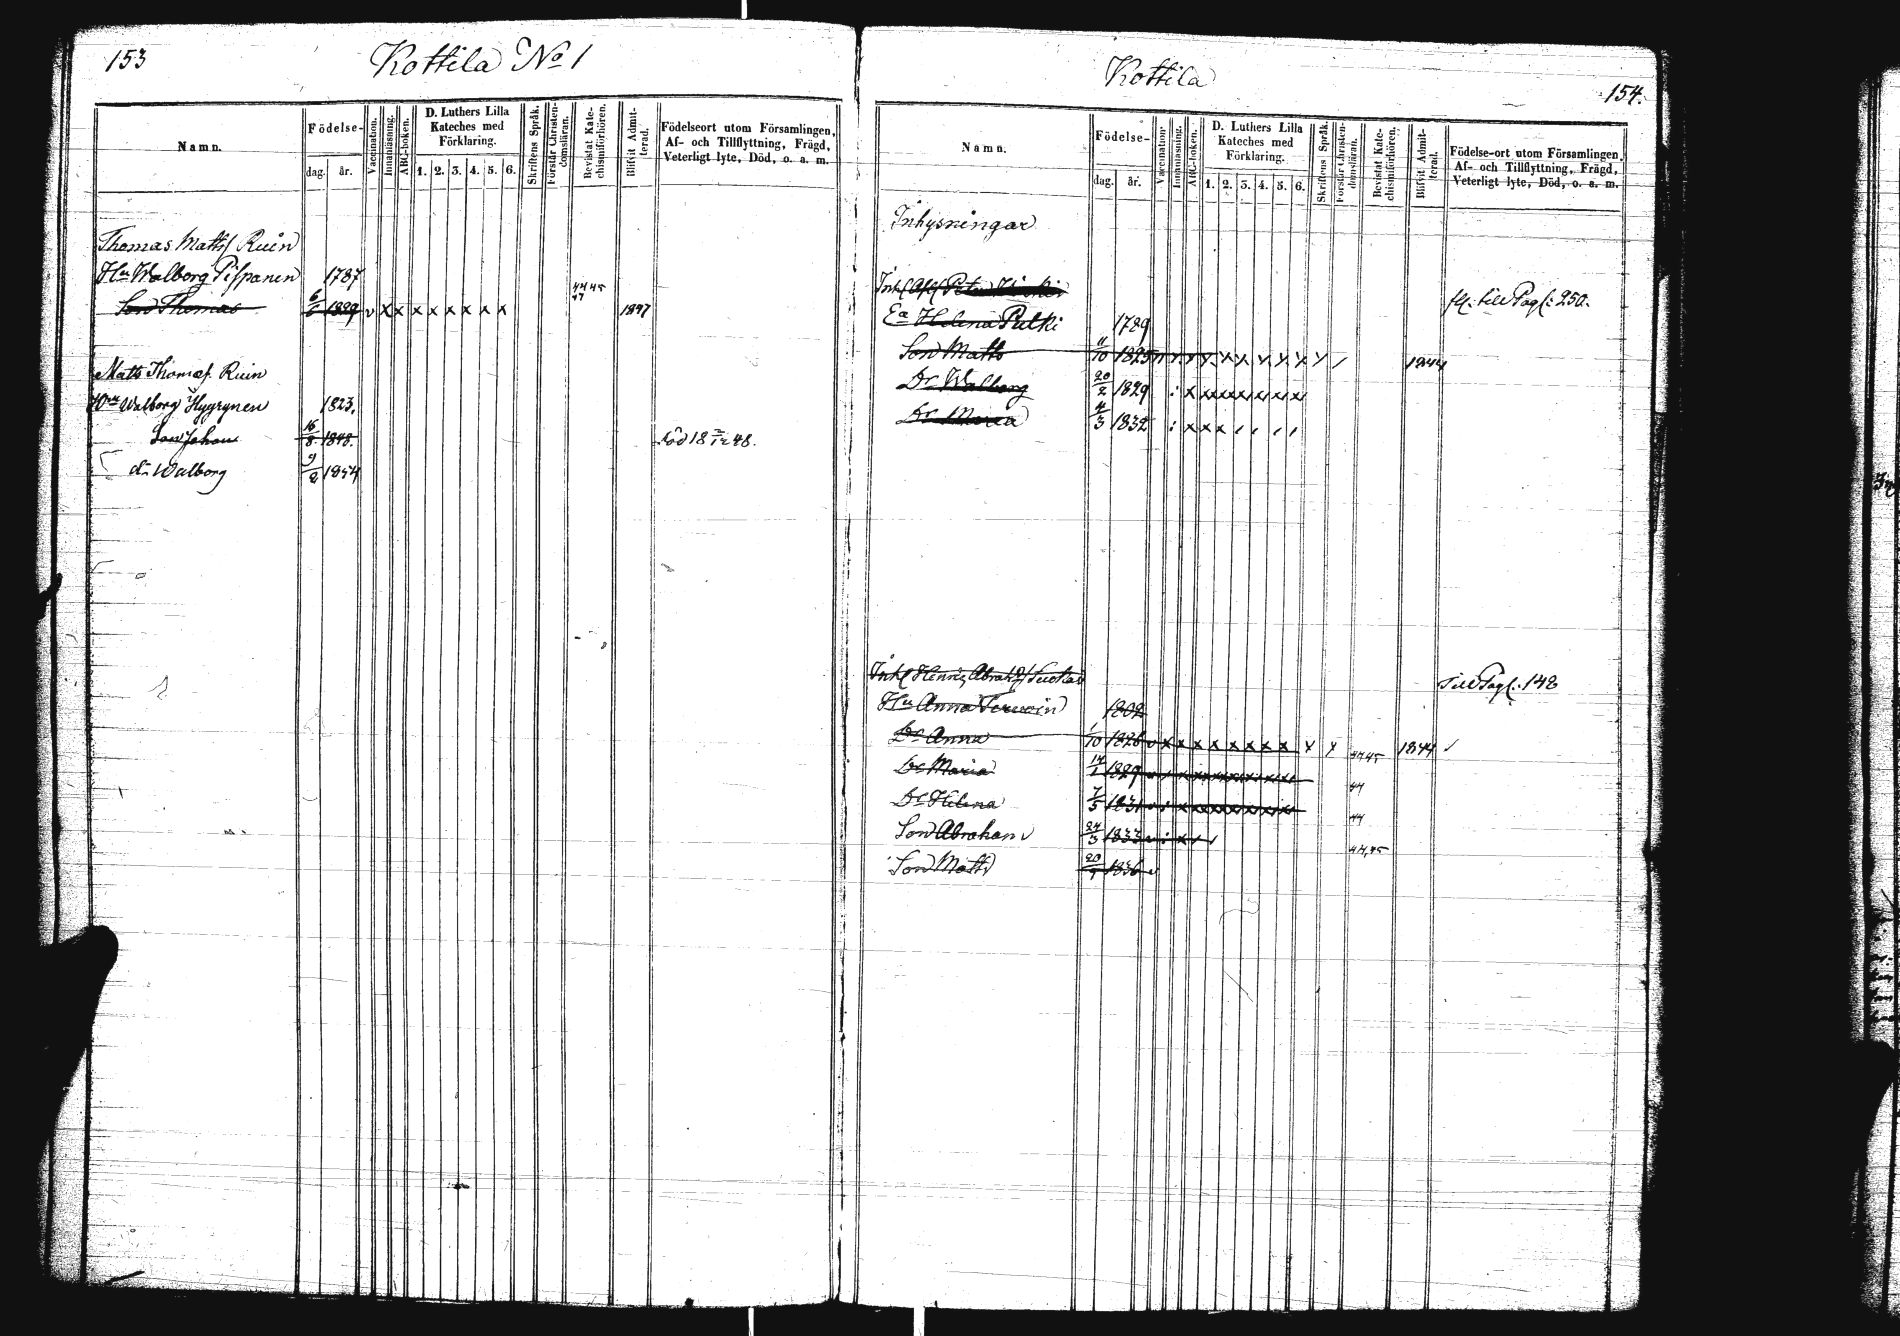 153
Kottila No 1
Namn.
Födelse-
dag. år.
Vaccination.
Innanläsning.
ABC-boken.
D. Luthers Lilla
Kateches med
Förklaring.
1. 2. 3. 4. 5. 6.
Skriftens Språk.
Förstår Christen-
domsläran.
Bevistat Kate-
chismiförhören.
Blifvit Admit-
terad.
Födelseort utom Församlingen,
Af- och Tillflyttning, Frägd,
Veterligt lyte, Död, o. a. m.
Thomas Matss Ruin
Hu Walborg Pispanen 1787
Son Thomas 1829 v x x x x x x x x 44 45 47 1847
Matts Thomas. Ruin
Hu Walborg Hyyrynen 1823.
Son Johan 16/8 1848. död 18 2/12 48.
dr Walborg 9/2 1854
Kottila
154.
Namn.
Födelse-
dag. år.
Vaccination
Innanläsning.
ABC-boken.
D. Luthers Lilla
Kateches med
Förklaring.
1. 2. 3. 4. 5. 6.
Skriftens Språk.
Förstår Christen-
domsläran.
Bevistat Kate-
chismiförhören.
Blifvit Admit-
terad.
Födelse-ort utom Församlingen,
Af- och Tillflyttning, Frägd,
Veterligt lyte, Död, o. a. m.
Inhysningar
Peter
till Pag: 250.
Ea Helena Pulki 1789
Son Matts 11/10 1825 1844
Dr Walborg 20/2 1829
Dr Maria 4/3 1832
Inh Henric Abrahs
Till Pag: 148
Hu Anna 1802
Dr Anna 1/10 1826 v x x x x x x x x 44 45 1844
Dr Maria 14/1 1829 44
Dr Helena 7/5 1831 44
Son Abraham 24/3 1833 44,45
Son Matts 20/9 1836 v